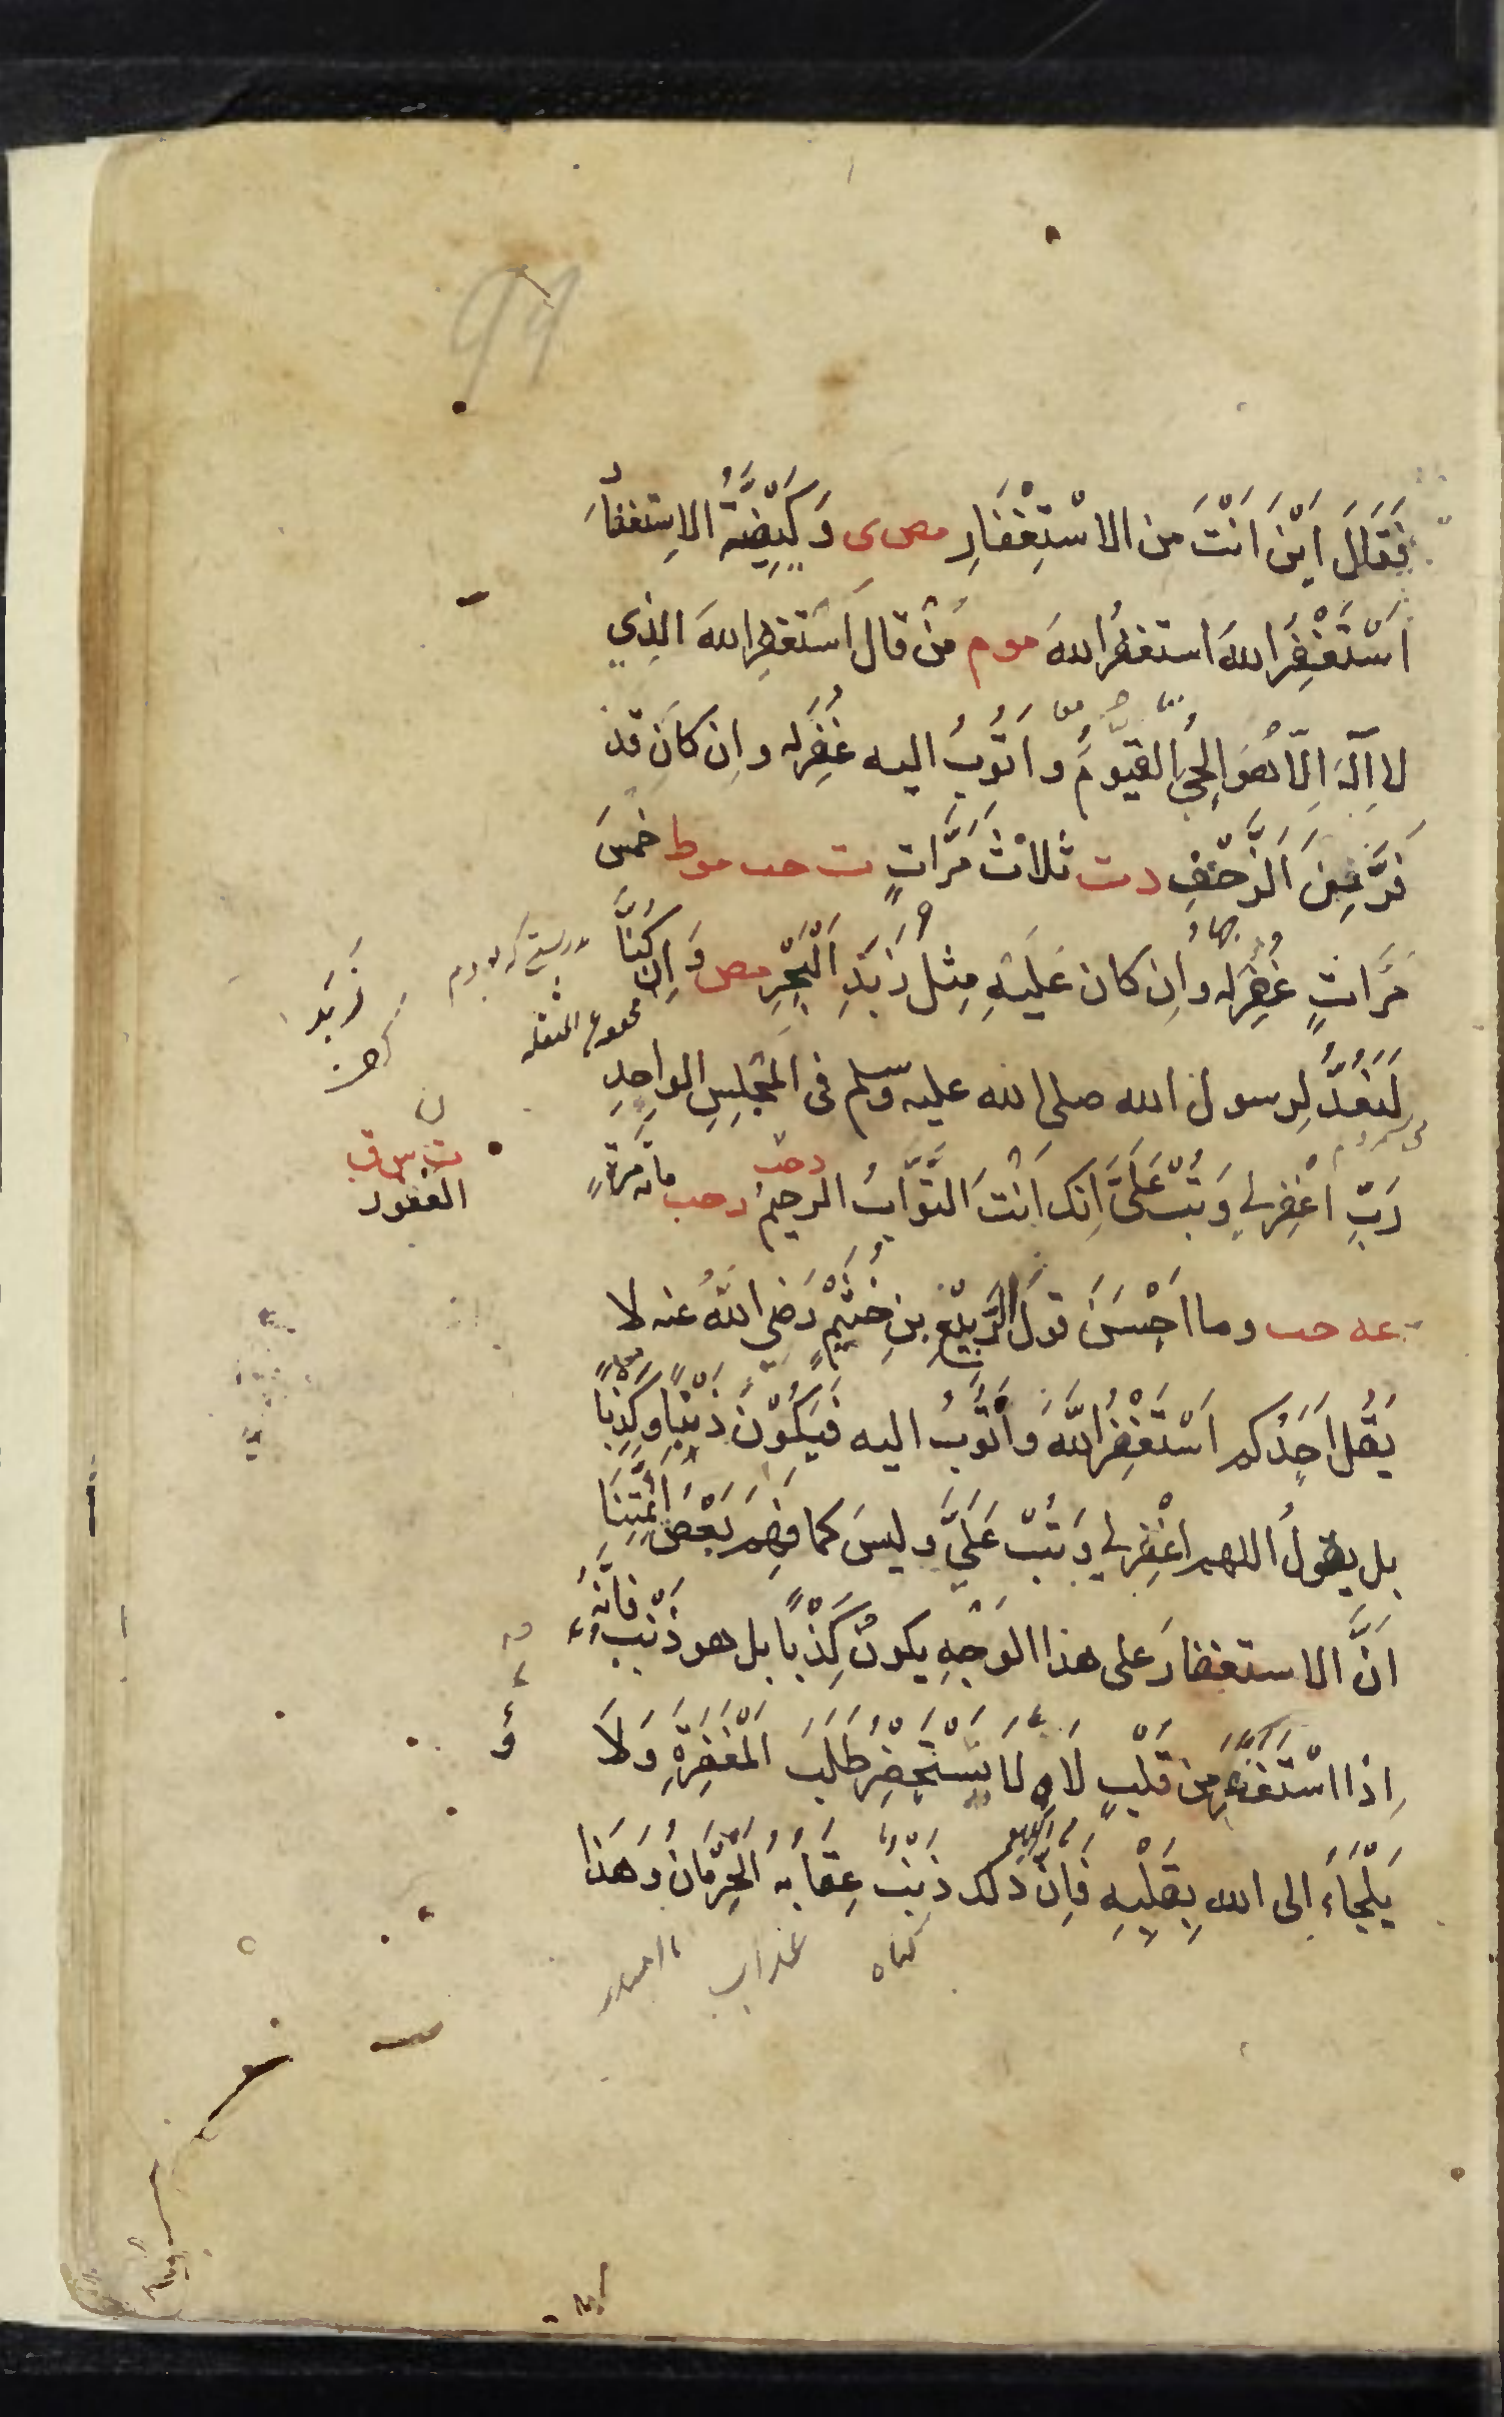 فَقَالَ اَيْنَ اَنْتَ من الاسْتِغْفَارِ مص ى وَكَيْفِيَّةُ الاِستِغفَار
اَسْتَغْفِرُ اللهَ استغفرُ اللهَ موم مَنْ قال اَسْتَغفِرُ اللهَ الذِي
لا اِلٰهَ اِلّا هُوَ الحيُّ القيّومُ واَتُوبُ اليه غُفِرَ له واِن كانَ قد
فَرَّ مِنَ الزَّحْفِ د ت ثلاثَ مَرَّاتٍ ت حب موط خمسَ
مَرَّاتٍ غُفِرَ له واِن كان عَلَيْهِ مِثلُ زَبَدِ الْبَحْرِ مص وَاِن كُنَّا
لَنَعُدُّ لِرسول الله صلى الله عليه وسلم فى المَجْلِسِ الواحِدِ
رَبِّ اغْفِر لي وَتُبْ عَلَىَّ اِنك اَنْتَ التَّوَّابُ الرحيمُ دحب مائة مرةٍ
عه حب وما اَحْسَنَ قولَ الرَّبِيْعِ بنِ خُثَيْمٍ رَضِيَ اللهُ عنه لا
يَقُل اَحَدُكم اَسْتَغْفِرُ اللّٰهَ وَاَتُوبُ اليه فَيَكُوْنَ ذَنْبًا وَكَذِبًا
بل يقولُ اللهم اغْفِر لي وَتُبْ عَلَيَّ وليسَ كما فَهِمَ بَعْضُ اَئِمَّتِنَا
اَنَّ الاستغفارَ على هذا الوَجْهِ يكونُ كَذْبًا بل هو ذَنْبٌ فَاِنَّهُ
اِذا اسْتَغْفَرَ مِن قَلْبٍ لَاهٍ لَا يَسْتَحْضِرُ طَلَبَ الْمَغْفِرَةِ وَلَا
يَلْجَاءُ الى الله بِقَلْبِهِ فَاِنَّ ذَلك ذَنْبٌ عِقَابُهُ الْحِرْمَانُ وَهَذا
زَبَد
كف
ت س ق
الغفور
كناه عذاب